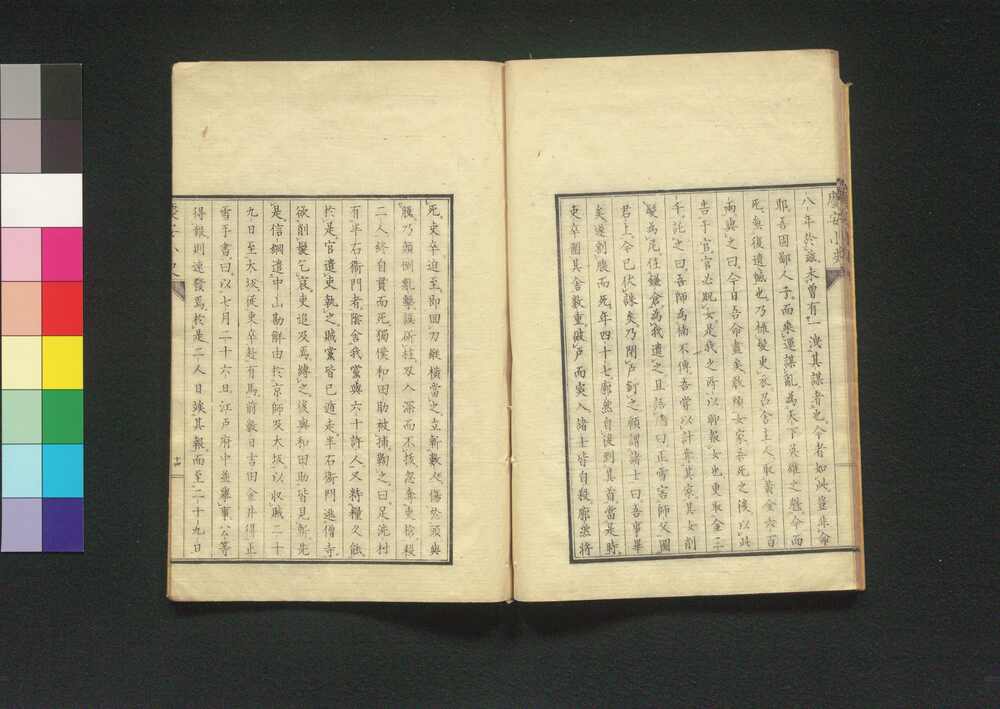 慶安小史
八年於茲未曾有一洩其謀者也今者如此豈非命
耶吾固鄙人子而來運謀亂為天下英雄之魁今而
死無復遺憾也乃梳髮更衣呂舍主人取黃金六百
兩與之曰今日吾命盡矣敢煩女家吾死之後以此
告于官官必貺女是我之所以聊報女也更取金三
千託之曰吾師為橘不傳吾嘗以計奪其家其女削
髮為尼住鎌倉為我遺之且語尼曰正雪害師父圖
君上今已伏誅矣乃閉戶訂之顧謂諸士曰吾事畢
矣遂割腹而死年四十七廓然自後刎其首當是時
吏卒圍其舍數重破戶而突入諸士皆自殺廓然將
死吏卒迫至即回刀縱橫當之立斬數人傷於頭與
腹乃顛倒亂擊誤斫柱刃入深而不拔忽奪吏槍殺
二人終自貫而死獨僕和田助被捕鞫之曰足洗村
有半石衞門者陰舍我黨與六十許人又持糧久餘
於是官遣吏執之賊黨皆已遁走半石衞門逃僧寺
欲削髮乞哀吏追及焉縛之後與和田助皆見斬先
是信綱遣中山勘解由於京師及大坂以收賊二十
九日至大坂從吏卒赴有馬前數日吉田金井得正
雪手書曰以七月二十六日江戶府中並舉事公等
得報則速發焉於是二人日竢其報而至二十九日